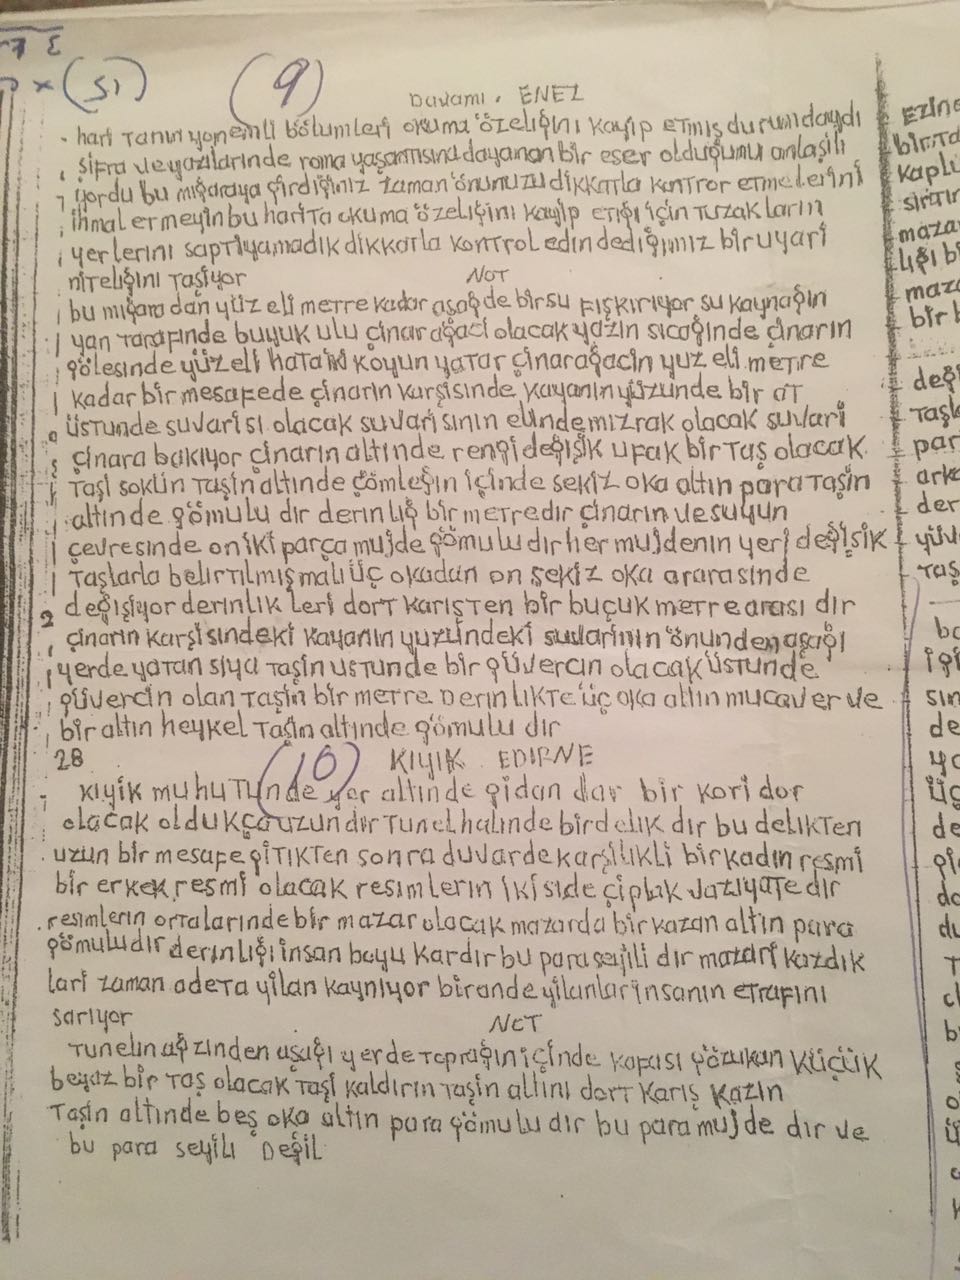 (51)
(9)
Davamı. ENEZ
haritanın yonemli bölümleri okuma özeliğini kayıp etmiş durumdaydı
şifra ve yazılarinde roma yaşantısına dayanan bir eser olduğumu anlaşili
yordu bu mığaraya girdiğiniz zaman önunuzu dikkatla kontror etmelerini
ihmal etmeyin bu harita okuma özeliğini kayip etiği için tuzakların
yerlerini saptiyamadik dikkatla kontrol edin dediğimiz bir uyari
niteliğini taşiyor
NOT
bu mığaradan yüz eli metre kadar aşağde bir su fışkırıyor su kaynağın
yan tarafinde buyuk ulu çinar ağaci olacak yazın sıcağinde çinarın
gölesinde yüzeli hata iki koyun yatar çinarağacin yuz eli metre
kadar bir mesafede çinarın karşisinde kayanın yüzünde bir at
üstunde suvarisi olacak suvarisının elinde mızrak olacak suvari
çinara bakıyor çinarın altinde rengi değişik ufak bir taş olacak
taşi sokün taşin altinde çömleğin içinde sekiz oka altın para taşin
altinde gömulu dir derinliğ bir metredir çinarın ve suyun
çevresinde on iki parça mujde gömulu dır her mujdenın yeri değişik
taşlarla belirtilmiş mali üç okadan on sekiz oka ararasinde
değişiyor derinlikleri dort karişten bir buçuk metre arası dır
çinarın karşisindeki kayanın yuzündeki suvarinin önunden aşaği
yerde yatan siya taşin ustunde bir güvercin olacak üstunde
güvercin olan taşin bir metre derinlikte üç oka altin mucaver ve
bir altin heykel taşin altinde gömulu dir
28
(10)
KIYIK EDIRNE
kıyik muhutunde yer altinde gidan dar bir koridor
olacak oldukça uzun dır tunel halinde bir delik dır bu delikten
uzun bir mesafe gitikten sonra duvarde karşilikli bir kadın resmi
bir erkek resmi olacak resimlerin ikiside çiplak vaziyate dir
resimlerin ortalarinde bir mazar olacak mazarda bir kazan altın para
gömulu dır derinliği insan boyu kardır bu para seyili dir mazari kazdık
lari zaman adeta yilan kaynıyor birande yilanlar insanın etrafını
sarıyor
NOT
tunelin ağzinden aşaği yerde toprağin içinde kafası gözukan küçük
beyaz bir taş olacak taşi kaldirin taşin altini dort karış kazın
taşin altinde beş oka altın para gömulu dir bu para mujde dır ve
bu para seyili değil